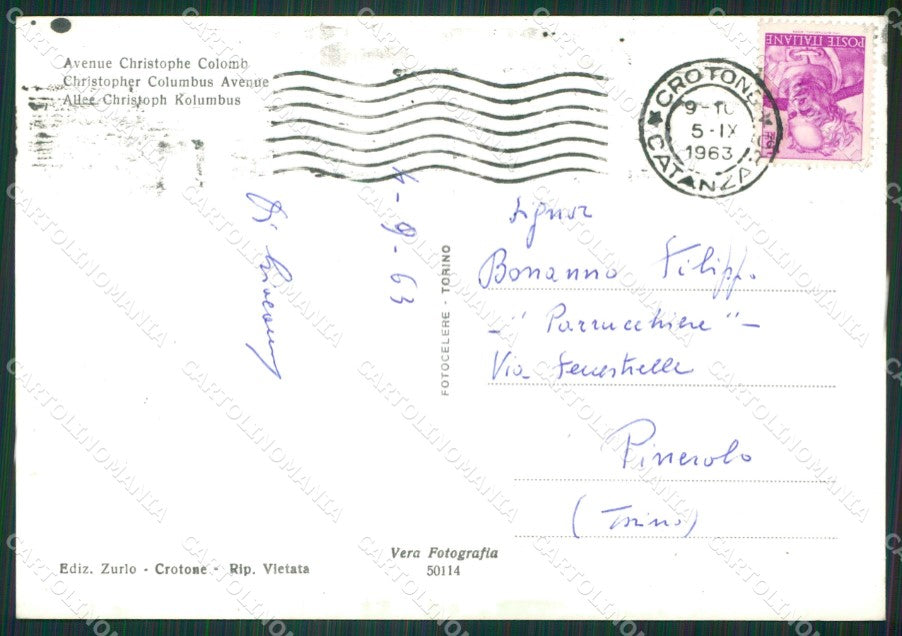 Avenue Christophe Colomb
Christopher Columbus Avenue
Allee Christoph Kolumbus
CROTONE
9-10
5-IX
1963
CATANZA
POSTE ITALIANE
4-9-63
FOTOCELERE - TORINO
Signor
Bonanno Filippo
"Parrucchiere"-
Via Fenestrelle
Pinerolo
(Torino)
Vera Fotografia
50114
Ediz. Zurlo - Crotone - Rip. Vietata
CARTOLINOMANIA